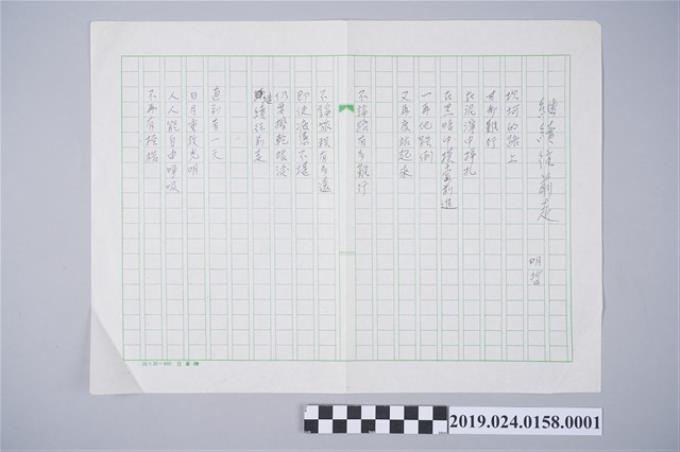 繼續往前走
明哲
坎坷的路上
寸步難行
在泥濘中掙扎
在黑暗中摸索前進
一再地跌倒
又再度站起來
不論路有多難行
不論旅程有多遠
即使疲憊不堪
仍要擦乾眼淚
繼續往前走
直到有一天
日月重現光明
人人能自由呼吸
不再有桎梏
2019.024.0158.0001